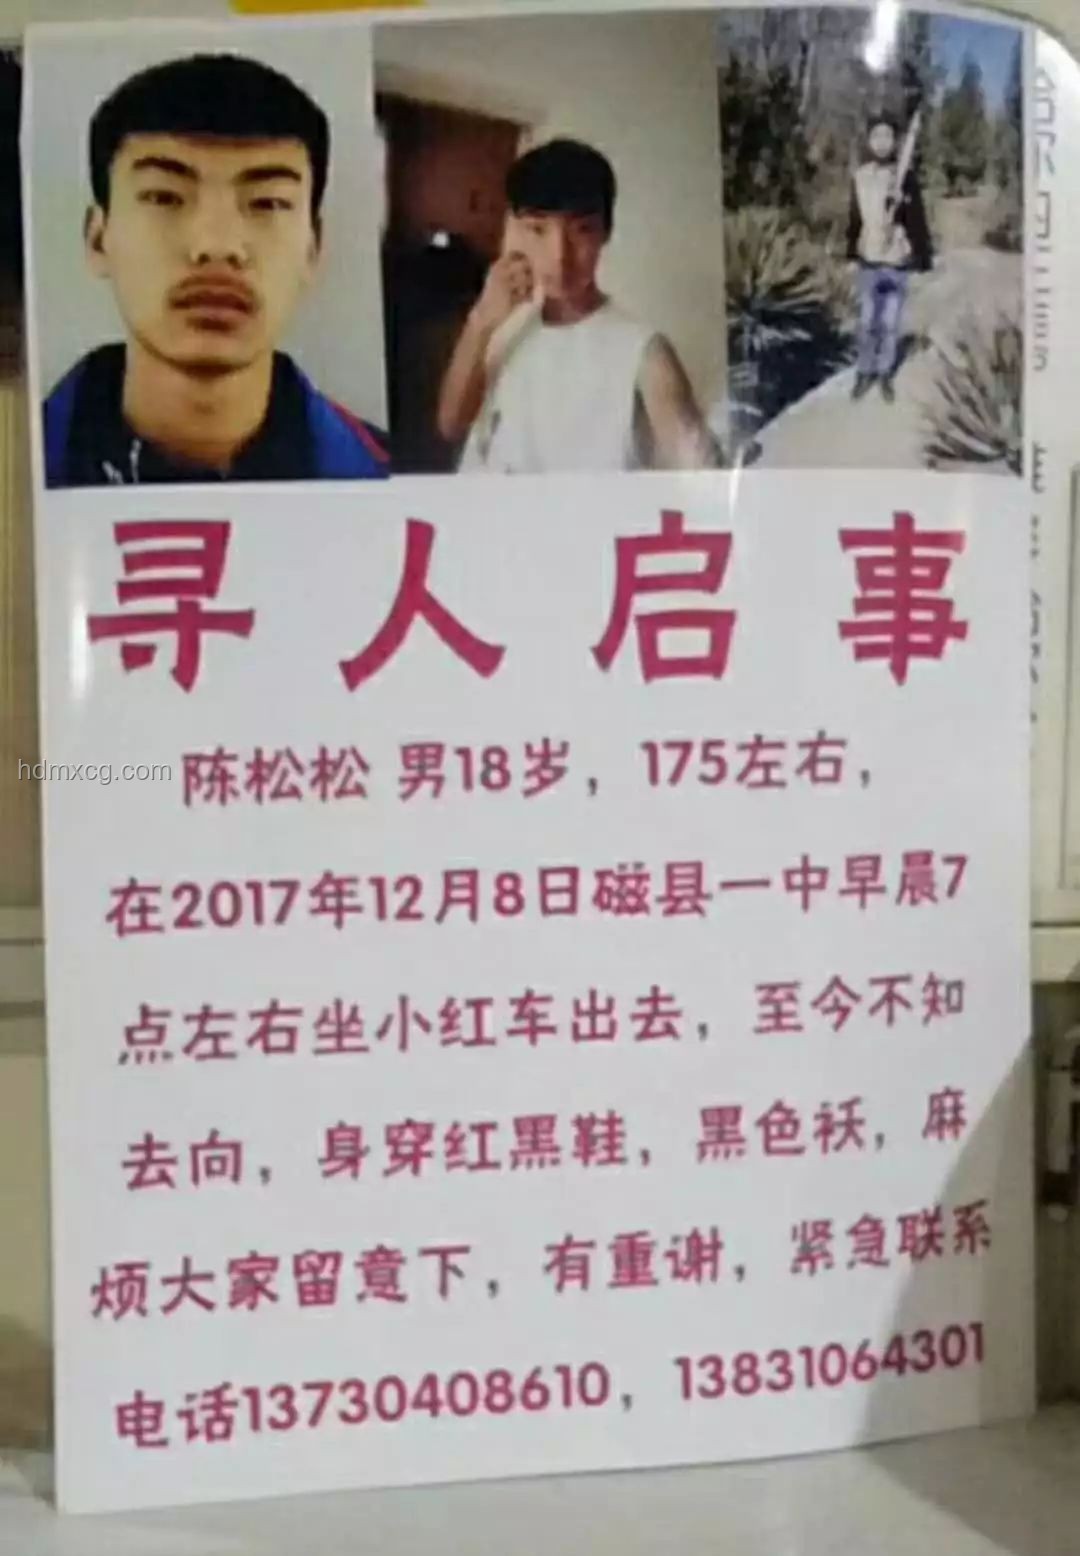 寻人启事
陈松松 男18岁，175左右，
hdmxcg.com
在2017年12月8日磁县一中早晨7
点左右坐小红车出去，至今不知
去向，身穿红黑鞋，黑色袄，麻
烦大家留意下，有重谢，紧急联系
电话13730408610，13831064301